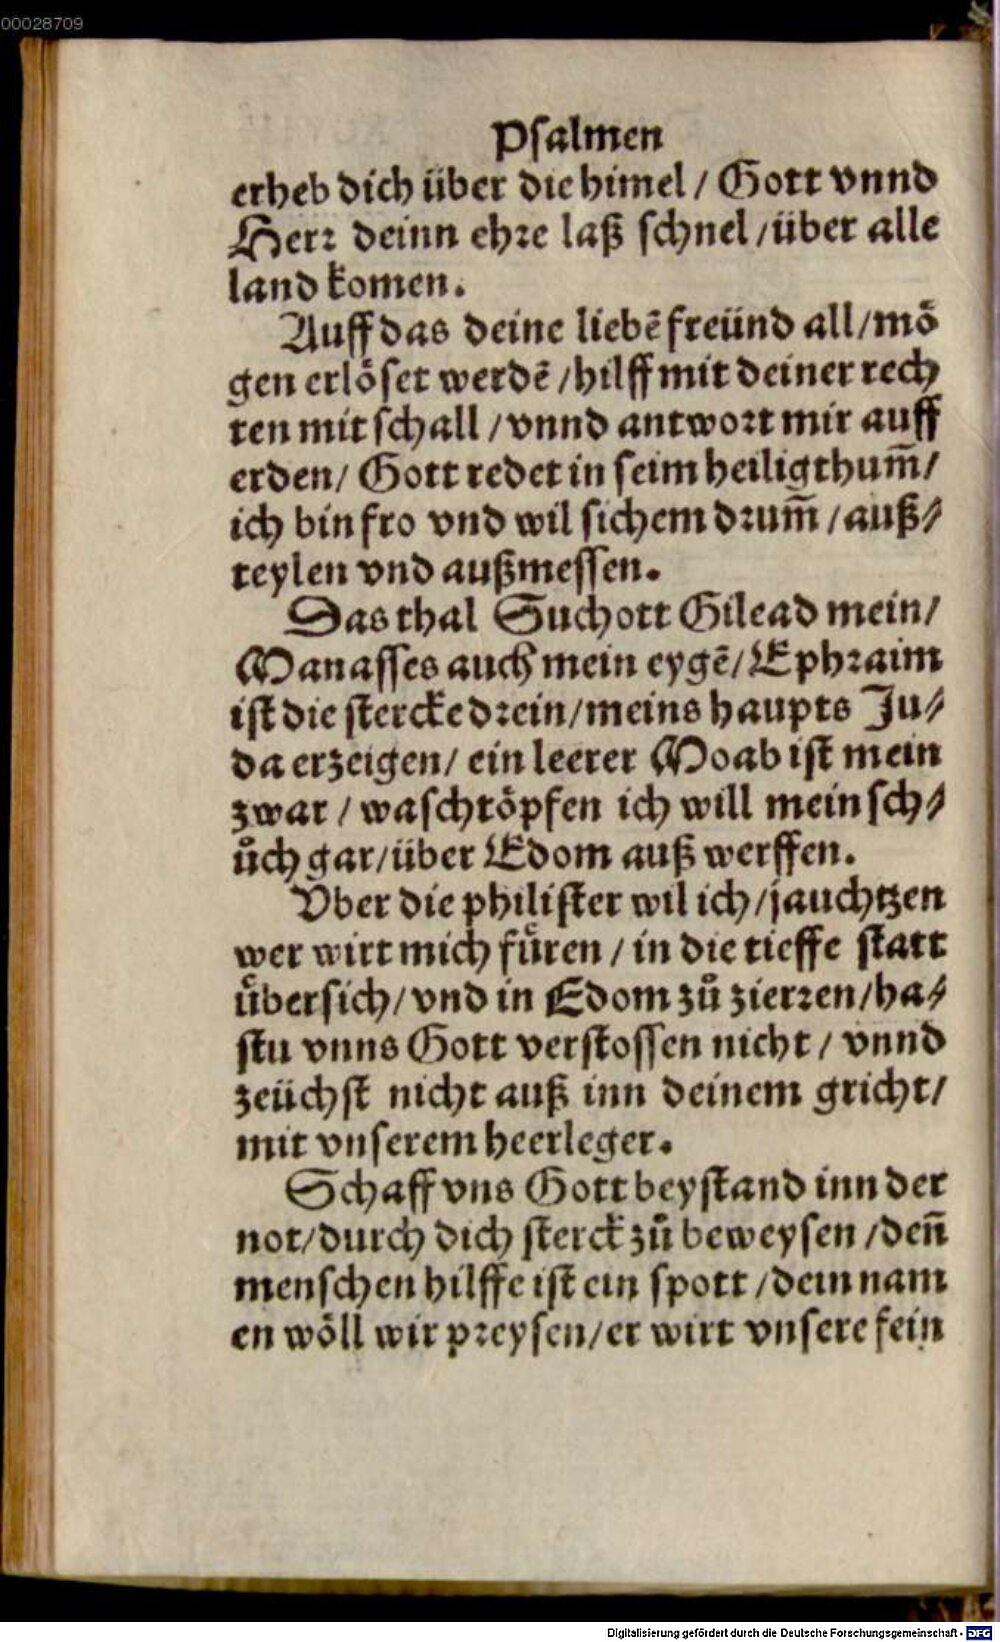 00028709
Psalmen
erheb dich über die himel / Gott vnnd
Herr deinn ehre laß schnel / über alle
land komen.
Auff das deine liebē freünd all / mö
gen erlöset werdē / hilff mit deiner rech
ten mit schall / vnnd antwort mir auff
erden / Gott redet in seim heiligthum̃ /
ich bin fro vnd wil sichem drum̃ / auß⸗
teylen vnd außmessen.
Das thal Suchott Gilead mein /
Manasses auch mein eygē / Ephraim
ist die stercke drein / meins haupts Ju⸗
da erzeigen / ein leerer Moab ist mein
zwar / waschtöpfen ich will mein sch⸗
ůch gar / über Edom auß werffen.
Vber die philister wil ich / jauchtzen
wer wirt mich füren / in die tieffe statt
übersich / vnd in Edom zů zierren / ha⸗
stu vnns Gott verstossen nicht / vnnd
zeüchst nicht auß inn deinem gricht /
mit vnserem heerleger.
Schaff vns Gott beystand inn der
not / durch dich sterck zů beweysen / den̄
menschen hilffe ist ein spott / dein nam
en wöll wir preysen / er wirt vnsere fein
Digitalisierung gefördert durch die Deutsche Forschungsgemeinschaft - DFG